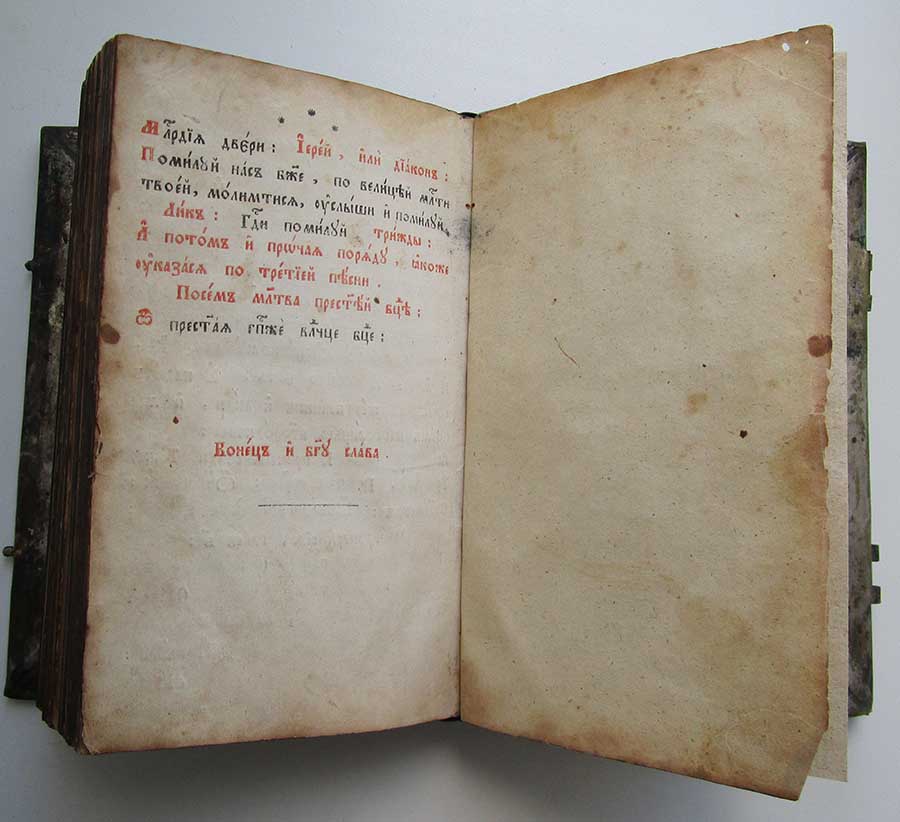 Млⷭ҇рдїѧ двє́ри : І҆єре́й , и҆лѝ дїа́конъ :
Поми́лꙋй на́съ бж҃е , по вели́цѣй млⷭ҇ти
твое́й, мо́лимтисѧ, ᲂу҆слы́ши и҆ поми́лꙋй.
Ли́къ : Гдⷭ҇и поми́лꙋй три́жды :
А҆ пото́мъ и҆ прѡ́чаѧ порѧ́дꙋ , ꙗ҆́коже
ᲂу҆каза́сѧ по тре́тїей пѣ́сни .
Посе́мъ мл҃тва прест҃ѣ́й бц҃ѣ :
Ѽ прест҃а́ѧ гпⷭ҇жѐ влⷣчце бц҃е :
Коне́цъ и҆ бг҃ꙋ сла́ва .